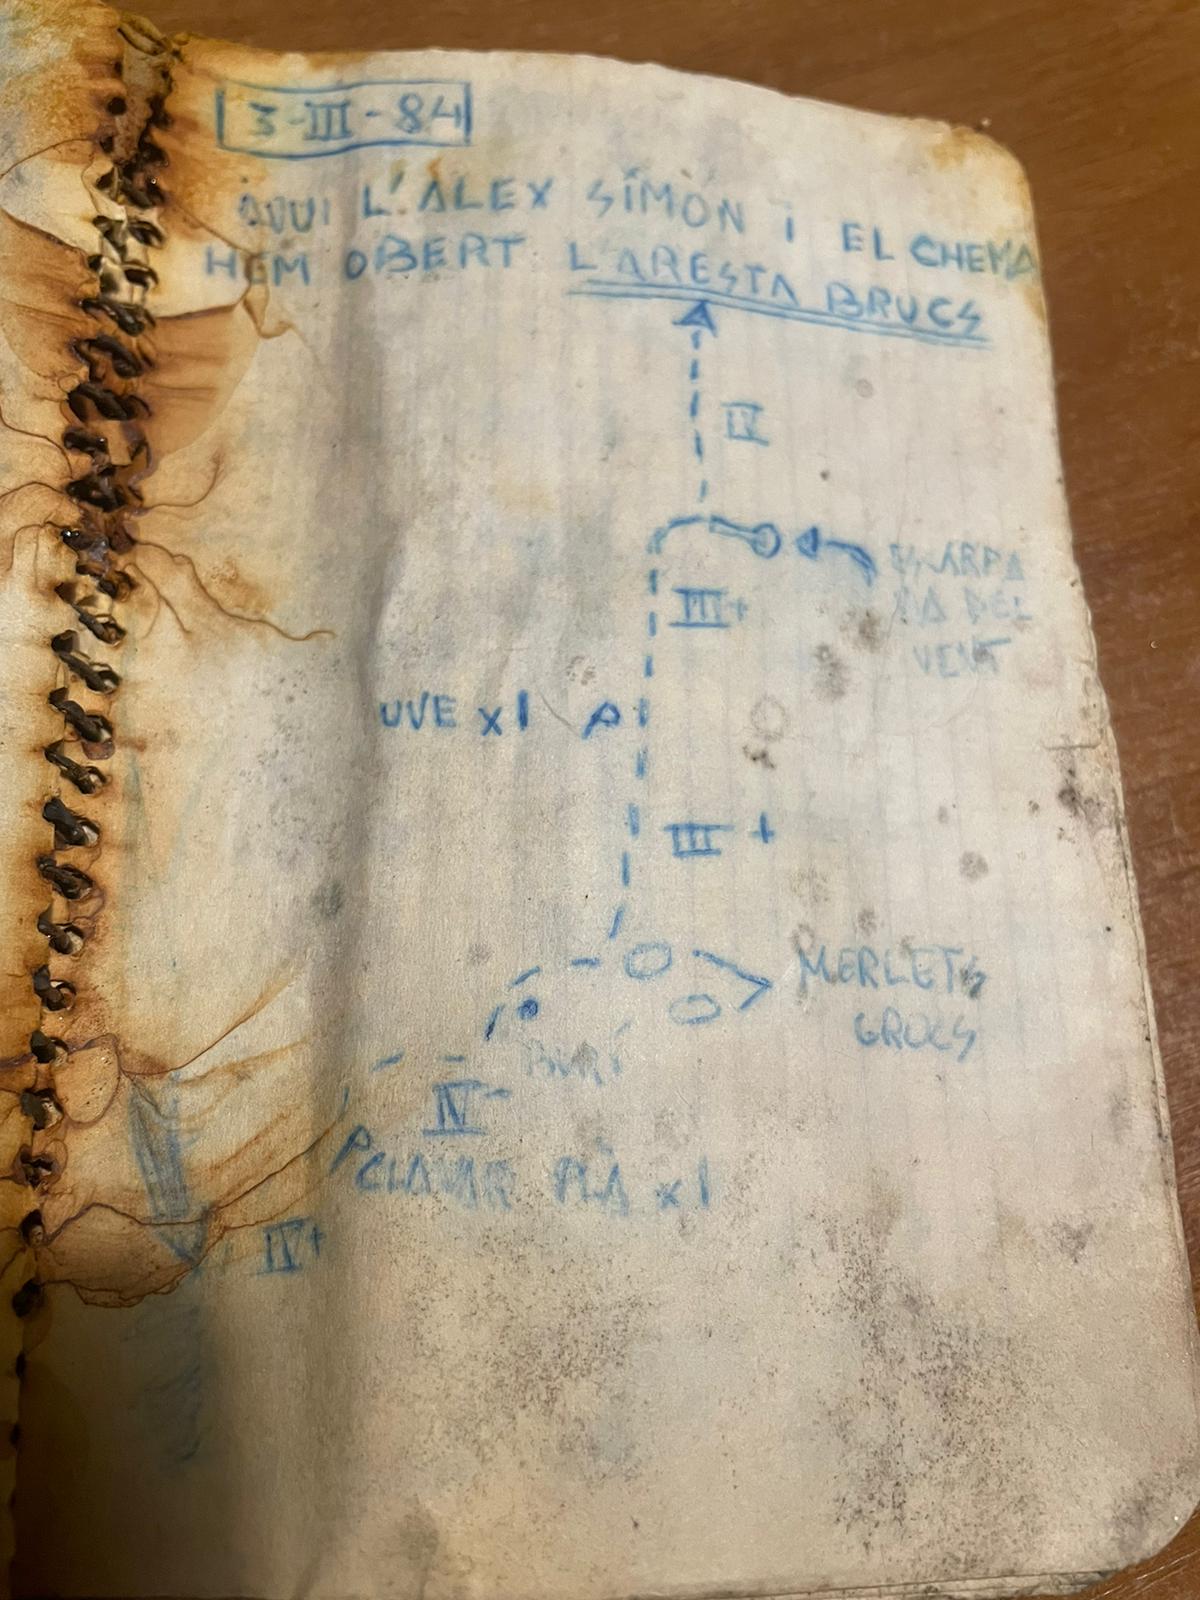 3-III-84
AVUI L'ALEX SIMÓN I EL CHEMA
HEM OBERT L'ARESTA BRUCS
IV
DEL
VENT
III+
UVE x1
III +
MERLETS
GROCS
BURÍ
IV-
CLAVAR PLÀ x1
IV+